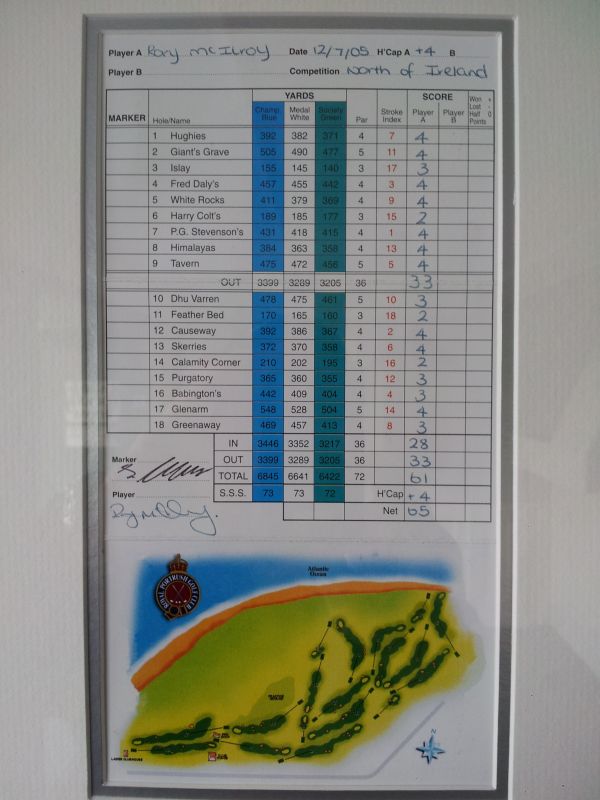 Player A Rory McIlroy Date 12/7/05 H'Cap A +4 B
Player B Competition North of Ireland
YARDS SCORE
MARKER Hole/Name Champ. Blue Medal White Society Green Par Stroke Index Player A Player B Won + Lost - Half 0 Points
1 Hughies 392 382 371 4 7 4
2 Giant's Grave 505 490 477 5 11 4
3 Islay 155 145 140 3 17 3
4 Fred Daly's 457 455 442 4 3 4
5 White Rocks 411 379 369 4 9 4
6 Harry Colt's 189 185 177 3 15 2
7 P.G. Stevenson's 431 418 415 4 1 4
8 Himalayas 384 363 358 4 13 4
9 Tavern 475 472 456 5 5 4
OUT 3399 3289 3205 36 33
10 Dhu Varren 478 475 461 5 10 3
11 Feather Bed 170 165 160 3 18 2
12 Causeway 392 386 367 4 2 4
13 Skerries 372 370 358 4 6 4
14 Calamity Corner 210 202 195 3 16 2
15 Purgatory 365 360 355 4 12 3
16 Babington's 442 409 404 4 4 3
17 Glenarm 548 528 504 5 14 4
18 Greenaway 469 457 413 4 8 3
IN 3446 3352 3217 36 28
Marker OUT 3399 3289 3205 36 33
TOTAL 6845 6641 6422 72 61
Player S.S.S. 73 73 72 H'Cap +4
Net 65
Atlantic Ocean
ROYAL PORTRUSH GOLF CLUB
LADIES CLUBHOUSE
N